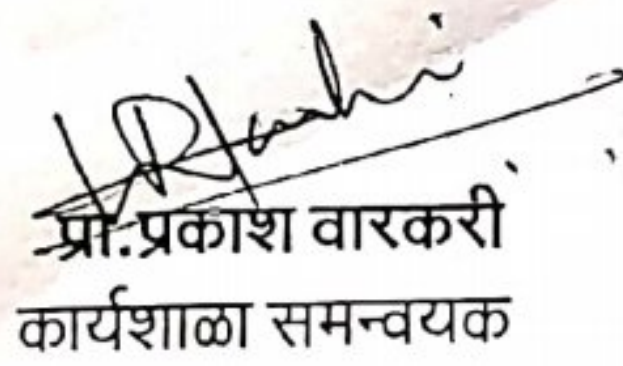 प्रा.प्रकाश वारकरी
कार्यशाळा समन्वयक